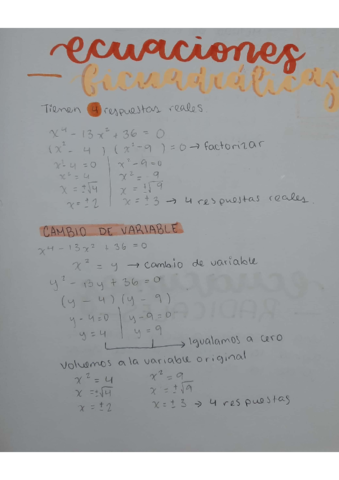 ecuaciones
— bicuadráticas
Tienen 4 respuestas reales
x⁴ - 13x² + 36 = 0
(x² - 4) (x² - 9) = 0 → factorizar
x² - 4 = 0 | x² - 9 = 0
x² = 4 | x² = 9
x = ±√4 | x = ±√9
x = ±2 | x = ±3 → 4 respuestas reales.
CAMBIO DE VARIABLE
x⁴ - 13x² + 36 = 0
x² = y → cambio de variable
y² - 13y + 36 = 0
(y - 4) (y - 9)
y - 4 = 0 | y - 9 = 0
y = 4 | y = 9
→ Igualamos a cero
volvemos a la variable original
x² = 4 x² = 9
x = ±√4 x = ±√9
x = ±2 x = ±3 → 4 respuestas